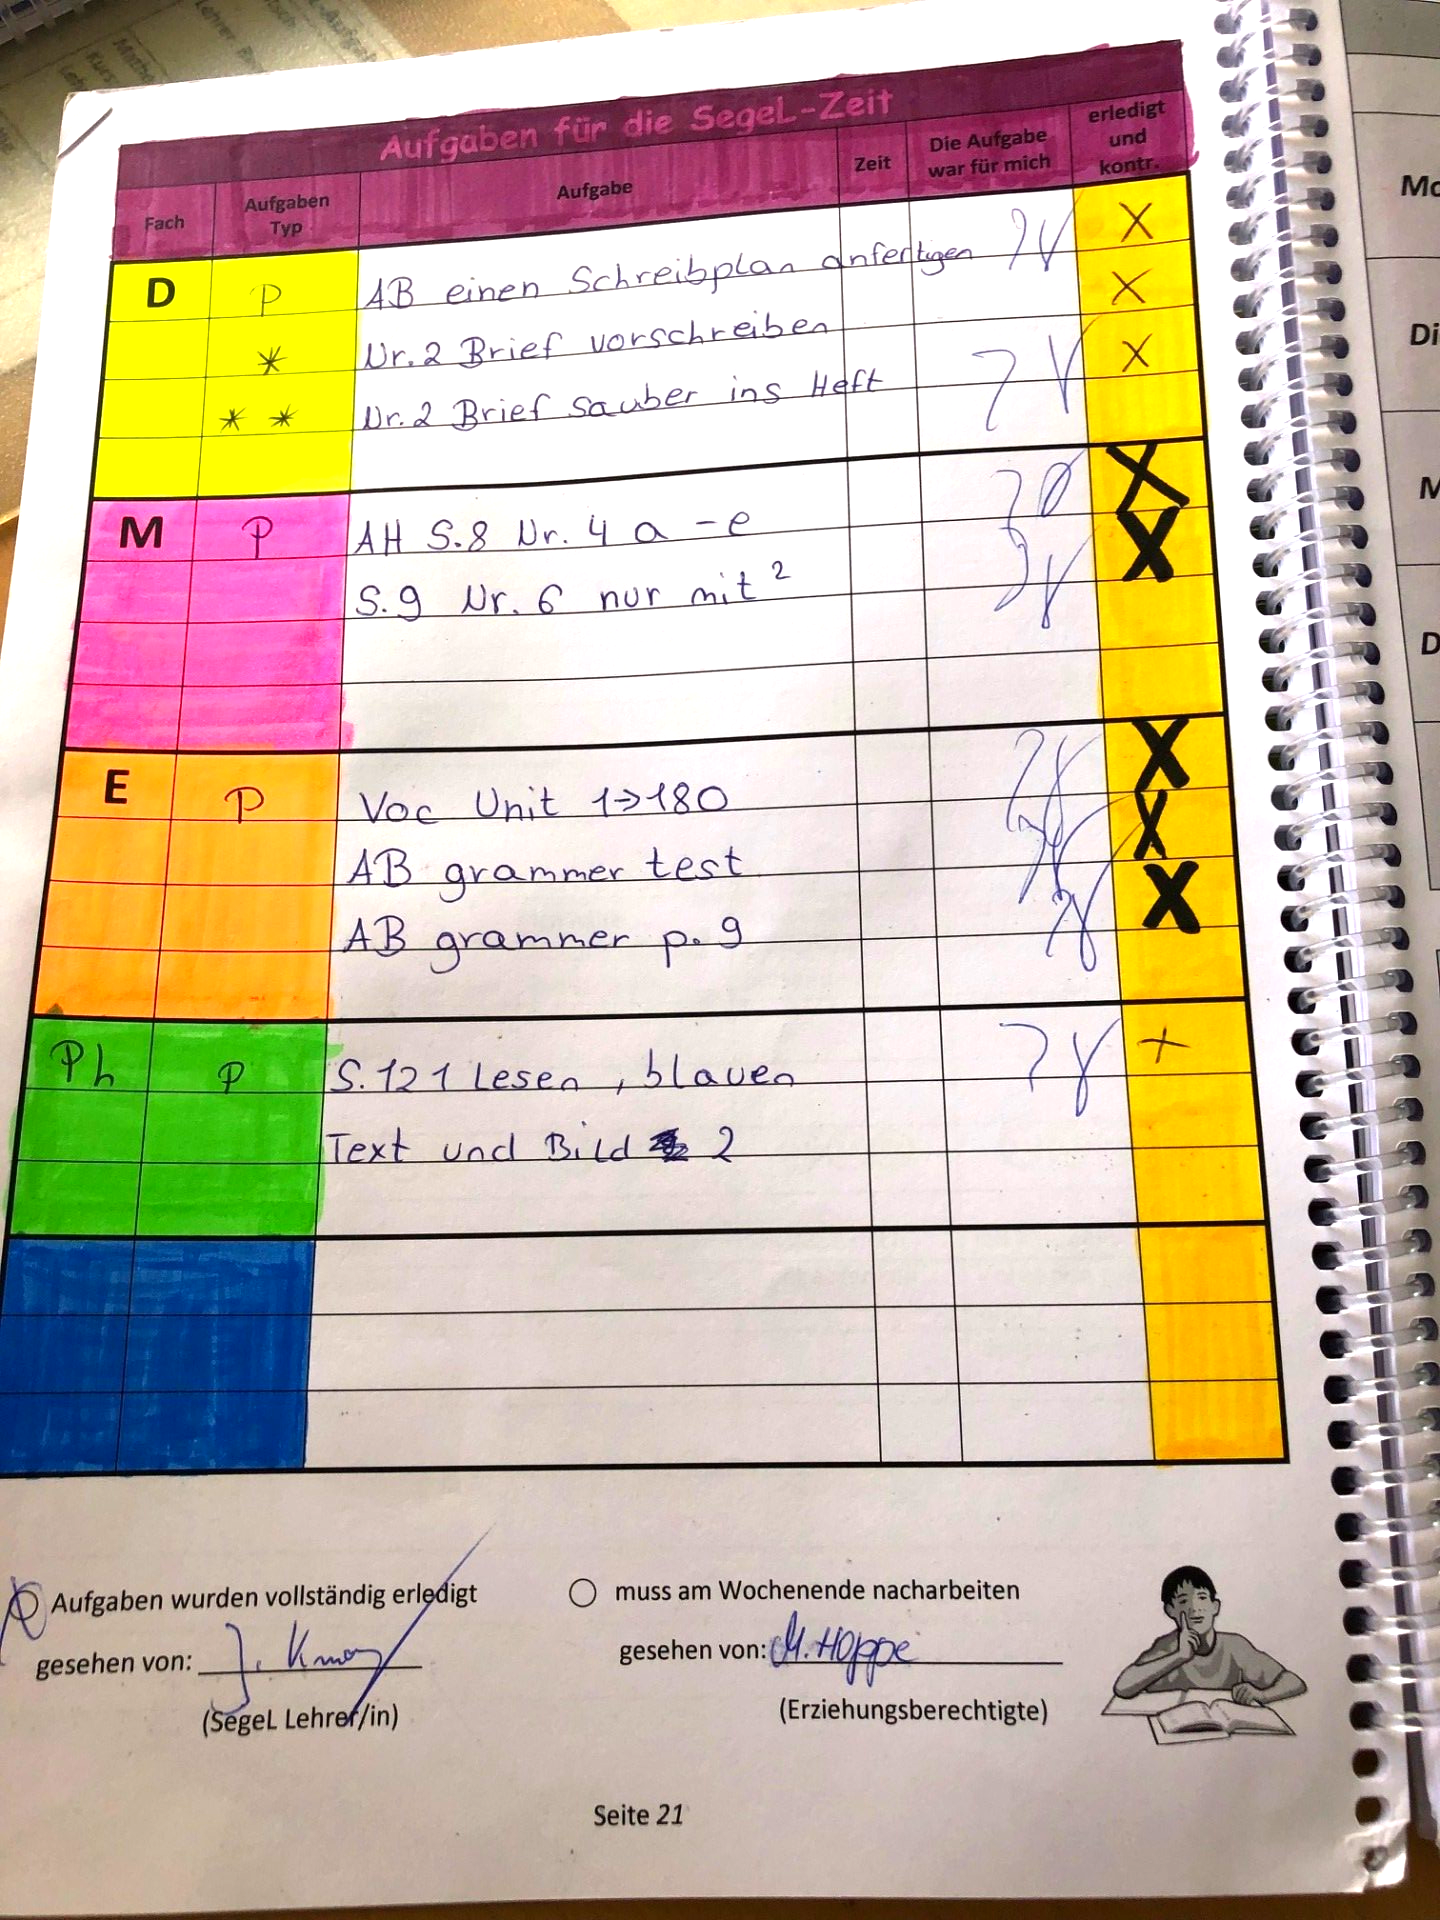 Aufgaben für die SegeL-Zeit
Fach
Aufgaben
Typ
Aufgabe
Zeit
Die Aufgabe
war für mich
erledigt
und
kontr.
D P AB einen Schreibplan anfertigen X
* Nr. 2 Brief vorschreiben X
* * Nr. 2 Brief sauber ins Heft X
M P AH S. 8 Nr. 4 a - e X
S. 9 Nr. 6 nur mit ² X
E P Voc Unit 1→180 X
AB grammer test X
AB grammer p. 9 X
Ph P S. 121 Lesen, blauen +
Text und Bild 2
Aufgaben wurden vollständig erledigt
gesehen von:
(SegeL Lehrer/in)
muss am Wochenende nacharbeiten
gesehen von: M. Hoppe
(Erziehungsberechtigte)
Seite 21
Di